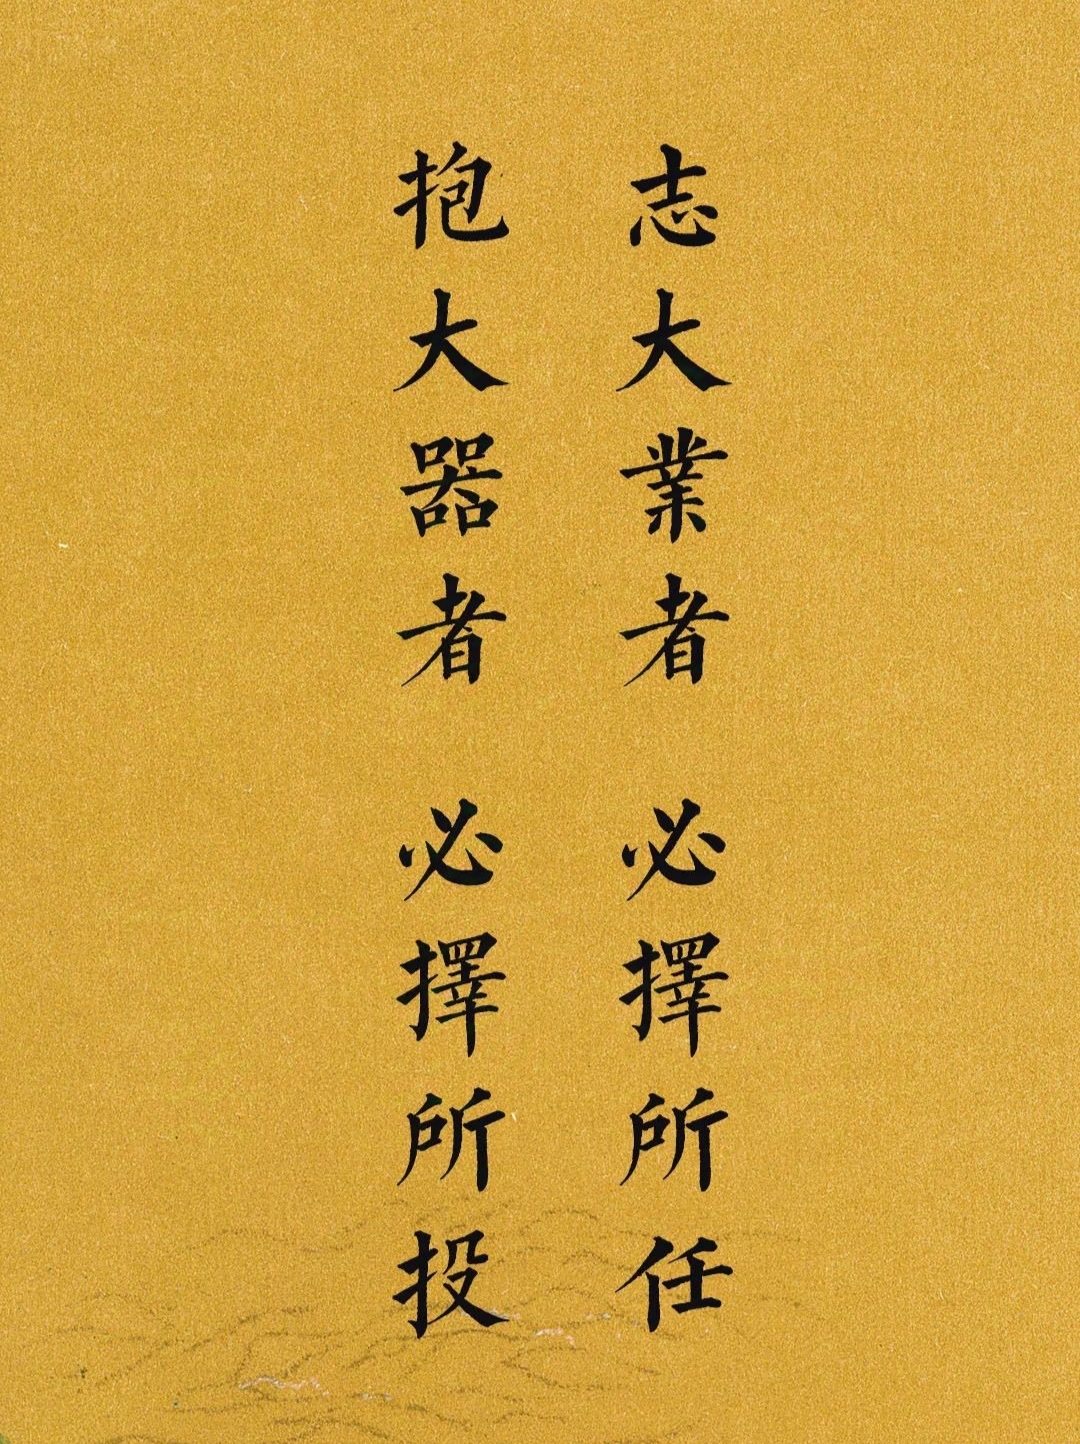 志大業者 必擇所任
抱大器者 必擇所投